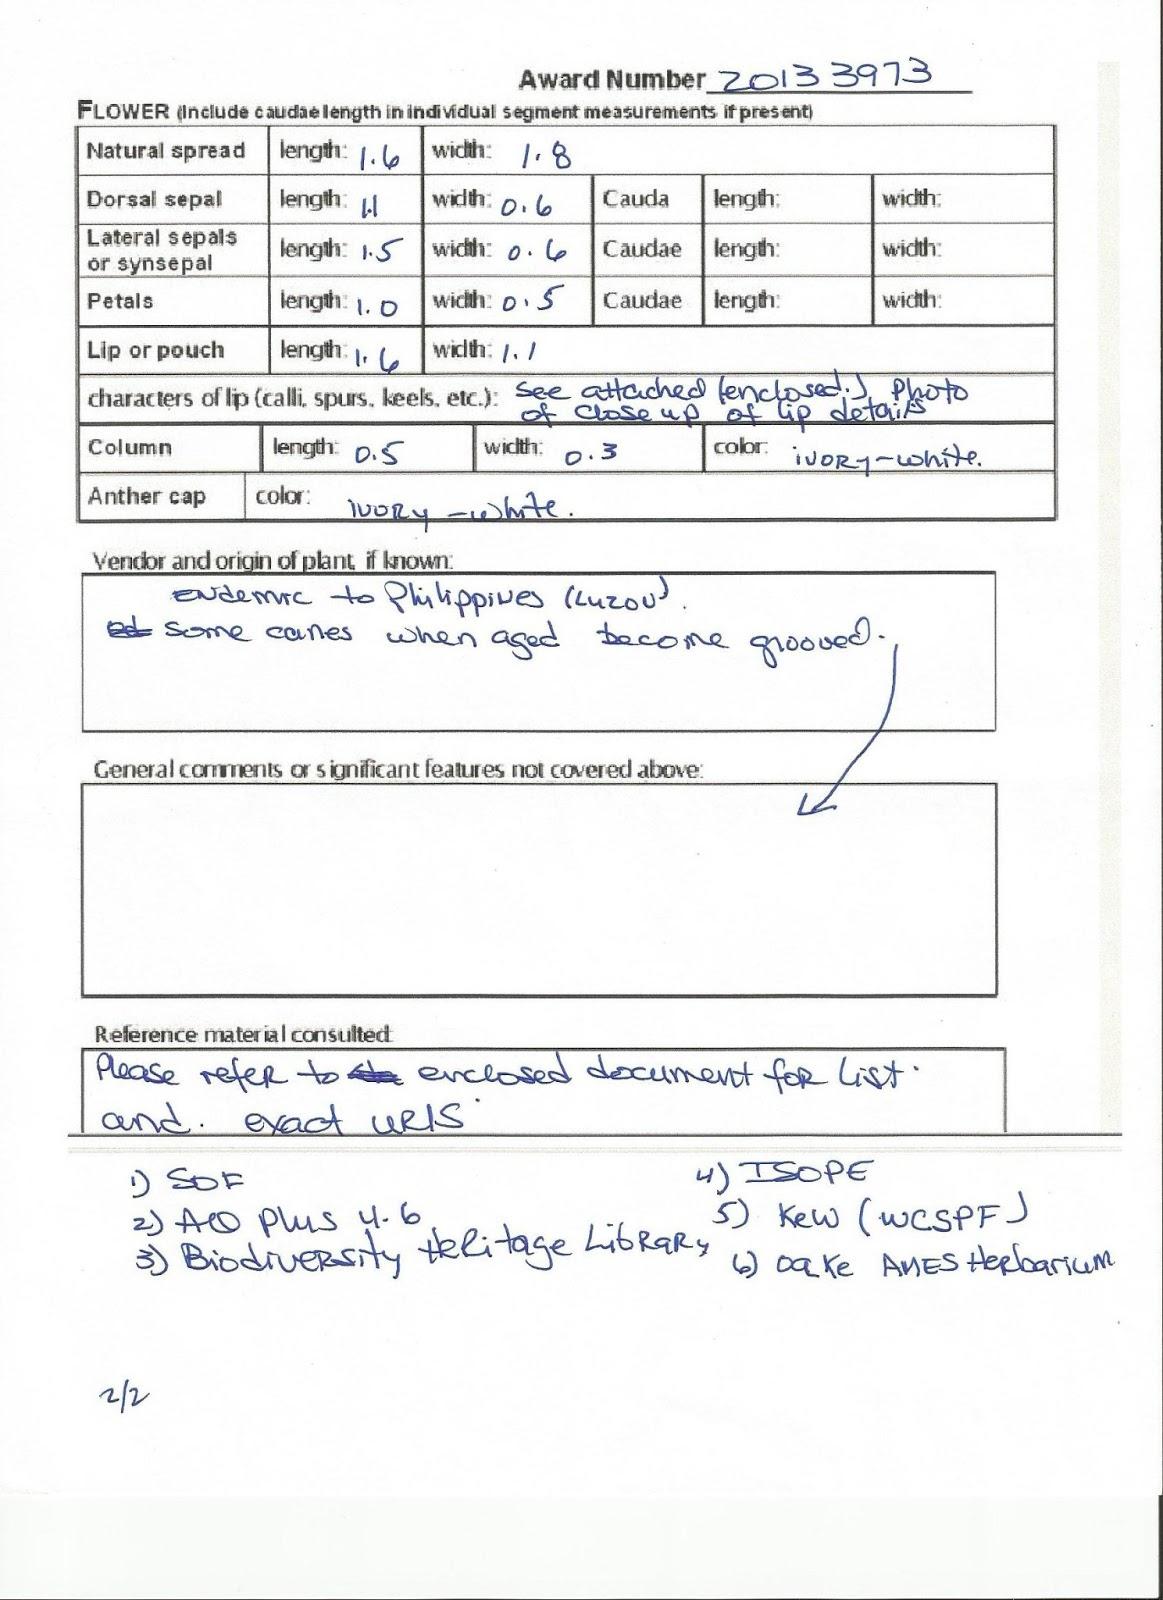 Award Number 20133973
FLOWER (Include caudae length in individual segment measurements if present)
Natural spread length: 1.6 width: 1.8
Dorsal sepal length: 1.1 width: 0.6 Cauda length: width:
Lateral sepals or synsepal length: 1.5 width: 0.6 Caudae length: width:
Petals length: 1.0 width: 0.5 Caudae length: width:
Lip or pouch length: 1.6 width: 1.1
characters of lip (calli, spurs, keels, etc.): see attached (enclosed.) Photo
of close up of lip details
Column length: 0.5 width: 0.3 color: ivory-white.
Anther cap color: ivory-white.
Vendor and origin of plant, if known:
endemic to Philippines (Luzon).
some canes when aged become grooved.
General comments or significant features not covered above:
Reference material consulted:
Please refer to enclosed document for list.
and. exact URLS
1) SOF
2) AQ Plus 4.6
3) Biodiversity Heritage Library
4) ISOPE
5) Kew (WCSPF)
6) Oake AMES Herbarium
2/2